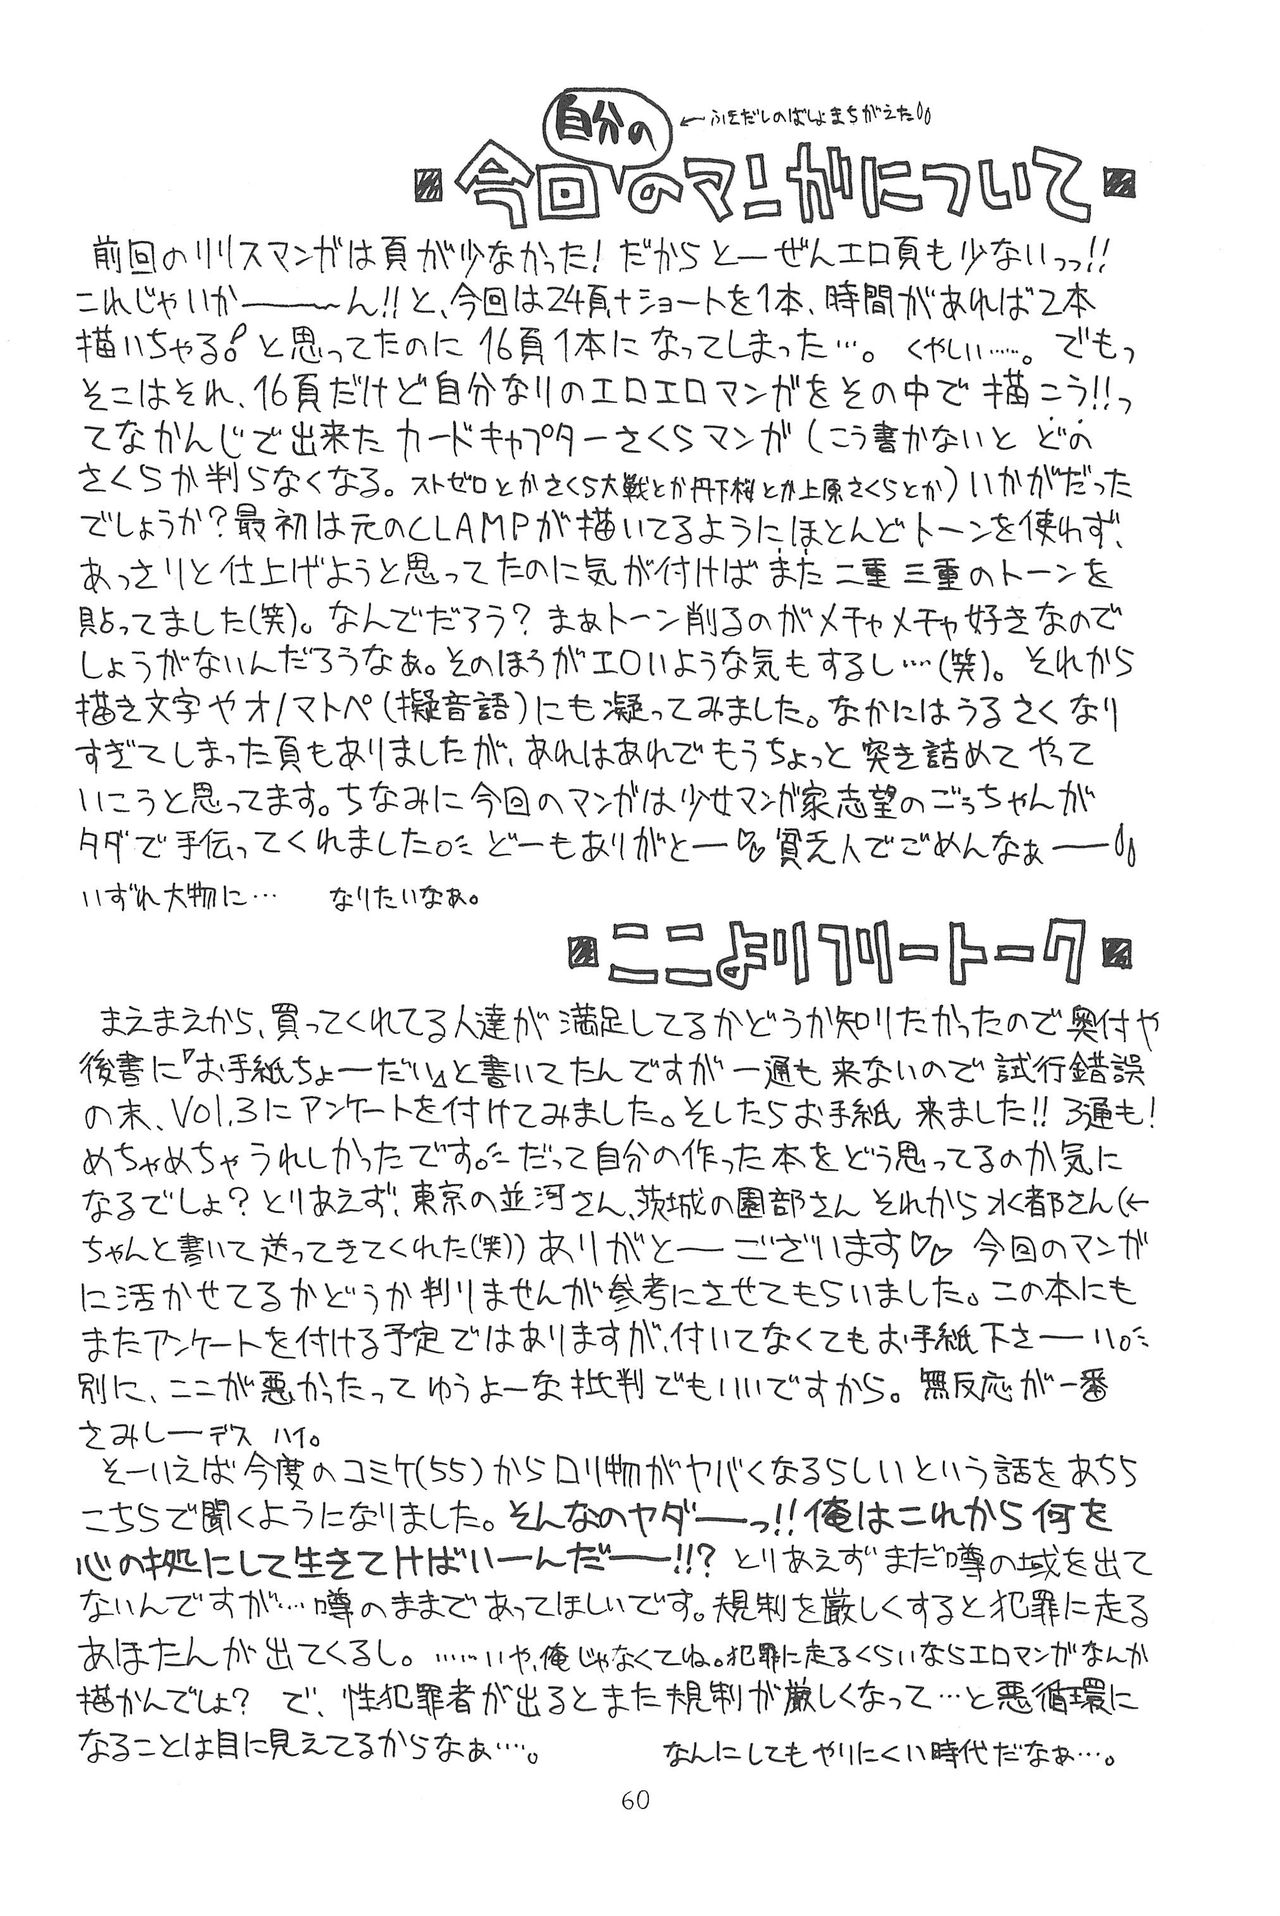 自分の ←ふきだしのばしょまちがえた
今回のマンガについて
前回のリリスマンガは頁が少なかった!だからとーぜんエロ頁も少ないっっ!!
これじゃいかーーー〜ん!!と、今回は24頁+ショートを1本、時間があれば2本
描いちゃる!と思ってたのに16頁1本になってしまった…。くやしい……。でもっ
そこはそれ、16頁だけど自分なりのエロエロマンガをその中で描こう!!っ
てなかんじで出来たカードキャプターさくらマンガ(こう書かないとどの
さくらか判らなくなる。ストゼロとかさくら大戦とか丹下桜とか上原さくらとか)いかがだった
でしょうか?最初は元のCLAMPが描いてるようにほとんどトーンを使わず、
あっさりと仕上げようと思ってたのに気が付けばまた二重三重のトーンを
貼ってました(笑)。なんでだろう?まぁトーン削るのがメチャメチャ好きなので
しょうがないんだろうなぁ。そのほうがエロいような気もするし…(笑)。それから
描き文字やオノマトペ(擬音語)にも凝ってみました。なかにはうるさくなり
すぎてしまった頁もありましたが、あれはあれでもうちょっと突き詰めてやって
いこうと思ってます。ちなみに今回のマンガは少女マンガ家志望のごぅちゃんが
タダで手伝ってくれました。どーもありがとー♡♡貧乏人でごめんなぁー
いずれ大物に… なりたいなぁ。
ここよりフリートーク
まえまえから、買ってくれてる人達が満足してるかどうか知りたかったので奥付や
後書に『お手紙ちょーだい』と書いてたんですが一通も来ないので試行錯誤
の末、Vol.3にアンケートを付けてみました。そしたらお手紙来ました!!3通も!
めちゃめちゃうれしかったです。だって自分の作った本をどう思ってるのか気に
なるでしょ?とりあえず、東京の並河さん、茨城の園部さんそれから水都さん(←
ちゃんと書いて送ってきてくれた(笑))ありがとーございます♡♡今回のマンガ
に活かせてるかどうか判りませんが参考にさせてもらいました。この本にも
またアンケートを付ける予定ではありますが、付いてなくてもお手紙下さーい。
別に、ここが悪かったってゆうよーな批判でもいいですから。無反応が一番
さみしーデス ハイ。
そーいえば今度のコミケ(55)からロリ物がヤバくなるらしいという話をあちら
こちらで聞くようになりました。そんなのヤダーっ!!俺はこれから何を
心の拠処にして生きてけばいーんだー!!?とりあえずまだ噂の域を出て
ないんですが…噂のままであってほしいです。規制を厳しくすると犯罪に走る
あほたんが出てくるし。……いや、俺じゃなくてね。犯罪に走るくらいならエロマンガなんか
描かんでしょ? で、性犯罪者が出るとまた規制が厳しくなって…と悪循環に
なることは目に見えてるからなぁ…。 なんにしてもやりにくい時代だなぁ…。
60